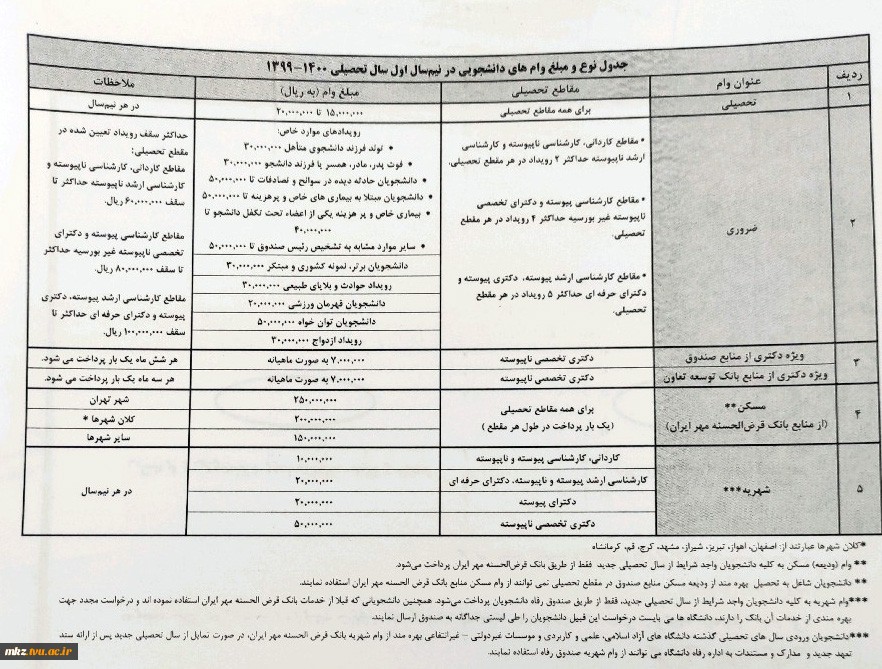 جدول نوع و مبلغ وام های دانشجویی در نیم‌سال اول سال تحصیلی ۱۴۰۰-۱۳۹۹
ردیف عنوان وام مقاطع تحصیلی مبلغ وام (به ریال) ملاحظات
۱ تحصیلی برای همه مقاطع تحصیلی ۱۵,۰۰۰,۰۰۰ تا ۲۰,۰۰۰,۰۰۰ در هر نیم‌سال
۲ ضروری
* مقاطع کاردانی، کارشناسی ناپیوسته و کارشناسی
ارشد ناپیوسته حداکثر ۲ رویداد در هر مقطع تحصیلی.
* مقاطع کارشناسی پیوسته و دکترای تخصصی
ناپیوسته غیر بورسیه حداکثر ۴ رویداد در هر مقطع
تحصیلی.
* مقاطع کارشناسی ارشد پیوسته، دکتری پیوسته و
دکترای حرفه ای حداکثر ۵ رویداد در هر مقطع
تحصیلی.
رویدادهای موارد خاص:
• تولد فرزند دانشجوی متأهل ۳۰,۰۰۰,۰۰۰
• فوت پدر، مادر، همسر یا فرزند دانشجو ۳۰,۰۰۰,۰۰۰
• دانشجویان حادثه دیده در سوانح و تصادفات تا ۵۰,۰۰۰,۰۰۰
• دانشجویان مبتلا به بیماری های خاص و پرهزینه تا ۵۰,۰۰۰,۰۰۰
• بیماری خاص و پر هزینه یکی از اعضاء تحت تکفل دانشجو تا
۴۰,۰۰۰,۰۰۰
• سایر موارد مشابه به تشخیص رئیس صندوق تا ۵۰,۰۰۰,۰۰۰
دانشجویان برتر، نمونه کشوری و مبتکر ۳۰,۰۰۰,۰۰۰
رویداد حوادث و بلایای طبیعی ۳۰,۰۰۰,۰۰۰
دانشجویان قهرمان ورزشی ۲۰,۰۰۰,۰۰۰
دانشجویان توان خواه ۵۰,۰۰۰,۰۰۰
رویداد ازدواج ۳۰,۰۰۰,۰۰۰
حداکثر سقف رویداد تعیین شده در
مقطع تحصیلی:
مقاطع کاردانی، کارشناسی ناپیوسته و
کارشناسی ارشد ناپیوسته حداکثر تا
سقف ۶۰,۰۰۰,۰۰۰ ریال.
مقاطع کارشناسی پیوسته و دکترای
تخصصی ناپیوسته غیر بورسیه حداکثر
تا سقف ۸۰,۰۰۰,۰۰۰ ریال.
مقاطع کارشناسی ارشد پیوسته، دکتری
پیوسته و دکترای حرفه ای حداکثر تا
سقف ۱۰۰,۰۰۰,۰۰۰ ریال.
۳ ویژه دکتری از منابع صندوق دکتری تخصصی ناپیوسته ۷,۰۰۰,۰۰۰ به صورت ماهیانه هر شش ماه یک بار پرداخت می شود.
ویژه دکتری از منابع بانک توسعه تعاون دکتری تخصصی ناپیوسته ۷,۰۰۰,۰۰۰ به صورت ماهیانه هر سه ماه یک بار پرداخت می شود.
۴ مسکن**
(از منابع بانک قرض‌الحسنه مهر ایران)
برای همه مقاطع تحصیلی
(یک بار پرداخت در طول هر مقطع)
۲۵۰,۰۰۰,۰۰۰ شهر تهران
۲۰۰,۰۰۰,۰۰۰ کلان شهرها *
۱۵۰,۰۰۰,۰۰۰ سایر شهرها
۵ شهریه***
کاردانی، کارشناسی پیوسته و ناپیوسته ۱۰,۰۰۰,۰۰۰
کارشناسی ارشد پیوسته و ناپیوسته، دکترای حرفه ای ۲۰,۰۰۰,۰۰۰
دکترای پیوسته ۲۰,۰۰۰,۰۰۰
دکتری تخصصی ناپیوسته ۵۰,۰۰۰,۰۰۰
در هر نیم‌سال
*کلان شهرها عبارتند از: اصفهان، اهواز، تبریز، شیراز، مشهد، کرج، قم، کرمانشاه
** وام (ودیعه) مسکن به کلیه دانشجویان واجد شرایط از سال تحصیلی جدید فقط از طریق بانک قرض‌الحسنه مهر ایران پرداخت می‌شود.
** دانشجویان شاغل به تحصیل بهره مند از ودیعه مسکن منابع صندوق در مقطع تحصیلی نمی توانند از وام مسکن منابع بانک قرض الحسنه مهر ایران استفاده نمایند.
***وام شهریه به کلیه دانشجویان واجد شرایط از سال تحصیلی جدید، فقط از طریق صندوق رفاه دانشجویان پرداخت می‌شود. همچنین دانشجویانی که قبلا از خدمات بانک قرض‌الحسنه مهر ایران استفاده نموده اند و درخواست مجدد جهت
بهره مندی از خدمات آن بانک را دارند، دانشگاه ها می بایست درخواست این قبیل دانشجویان را طی لیستی جداگانه به صندوق ارسال نمایند.
***دانشجویان ورودی سال های تحصیلی گذشته دانشگاه های آزاد اسلامی، علمی و کاربردی و موسسات غیردولتی - غیرانتفاعی بهره مند از وام شهریه بانک قرض الحسنه مهر ایران، در صورت تمایل از سال تحصیلی جدید پس از ارائه سند
تعهد جدید و مدارک و مستندات به اداره رفاه دانشگاه می توانند از وام شهریه صندوق رفاه استفاده نمایند.
mkz.tvu.ac.ir